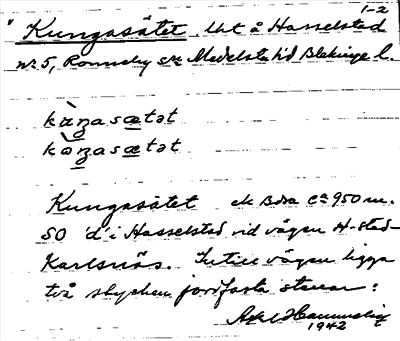 1-2
" Kungasätet, lht å Hasselstad
nr 5, Ronneby sn Medelsta hd Blekinge l.
kàŋasætət
kàŋasætət
Kungasätet ek Bdra Ca 950 m.
SO d i Hasselstad vid vägen H-stad-
Karlsnäs. Intill vägen ligga
två stycken jordfasta stenar:
1942